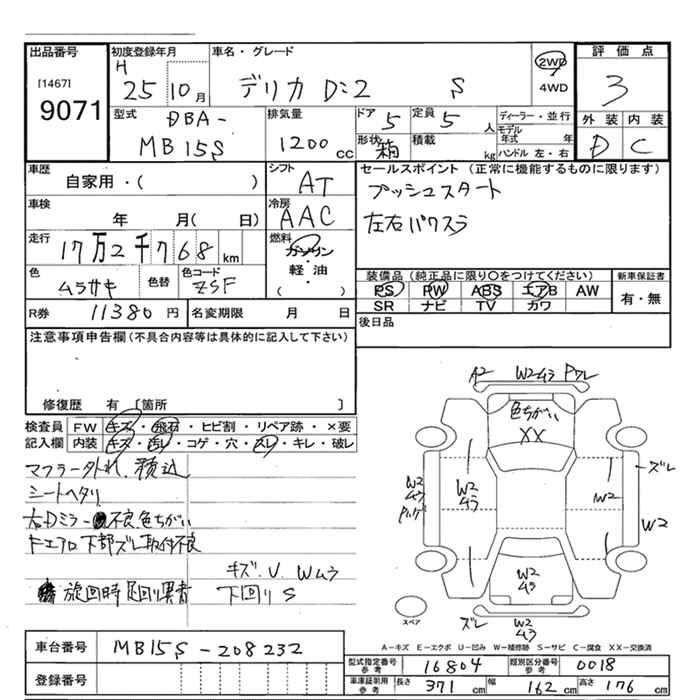 出品番号
[1467]
9071
初度登録年月
H 25 10月
車名・グレード
デリカ D:2 S
2WD
4WD
評価点
3
外装 内装
D C
型式
DBA-
MB15S
排気量
1200 cc
ドア 5
形状 箱
定員 5 人
積載 kg
ディーラー・並行
モデル年式 年
ハンドル 左・右
車歴
自家用・( )
シフト
AT
セールスポイント(正常に機能するものに限ります)
プッシュスタート
左右パワスラ
車検
年 月( 日)
冷房
AAC
走行
17万2千768km
燃料
ガソリン
軽・油
( )
色
ムラサキ
色替
色コード
ZSF
装備品(純正品に限り○をつけてください)
PS PW ABS エアB AW
SR ナビ TV カワ
新車保証書
有・無
R券 11380円
名変期限 月 日
後日品
注意事項申告欄(不具合内容等は具体的に記入して下さい)
修復歴 有 [箇所 ]
検査員
記入欄
FW キズ・飛石・ヒビ割・リペア跡・×要
内装 キズ・汚レ・コゲ・穴・スレ・キレ・破レ
マフラー外れ、積込
シートヘタリ
右Dミラー不良色ちがい
Fエアロ下部ズレ取付不良
キズ.U.Wムラ
旋回時足回り異音
下回りS
A2 W2ムラ Fワレ
色ちがい
XX
W2
ムラ
W2
ムラ
W2
ズレ
W2
W2
ムラ
スペア
ズレ W2ムラ
A-キズ E-エクボ U-凹み W-補修跡 S-サビ C-腐食 XX-交換済
車台番号 MB15S-208232
登録番号
型式指定番号
参考
16804
類別区分番号
参考
0018
車庫証明用
参考
長さ 371cm 幅 162cm 高さ 176cm